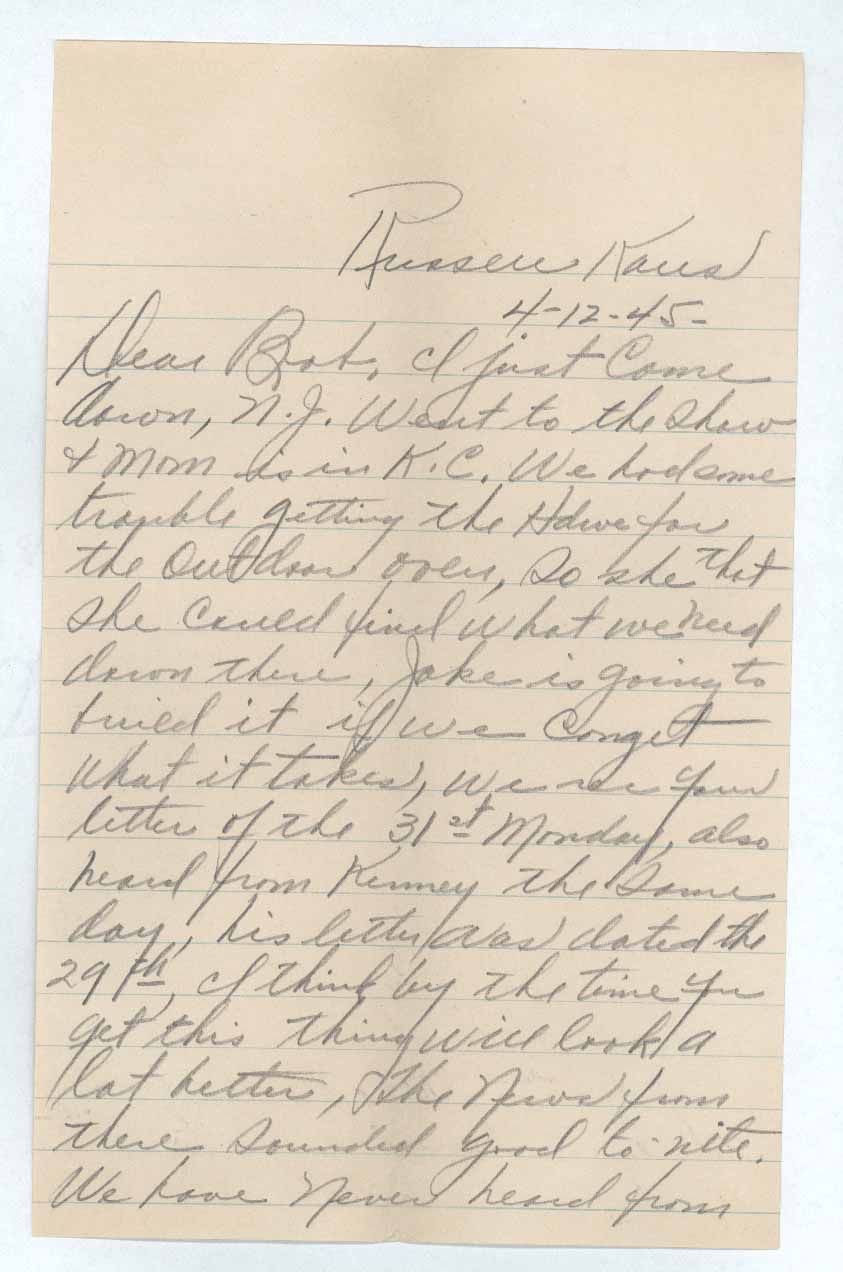 Russell Kans
4-12-45-
Dear Bob, I just Come
down, N.J. Went to the show
& Mom is in K.C. We had some
trouble getting the Hdwe for
the Outdoor oven, so she that
she Could find what we need
down there, Jake is going to
build it if we Can get
what it takes, we rec your
letter of the 31st Monday, also
heard from Kenney the same
day, his letter was dated the
29th, I think by the time you
get this thing will look a
lot better, The News from
there sounded good to-nite.
We have Never heard from